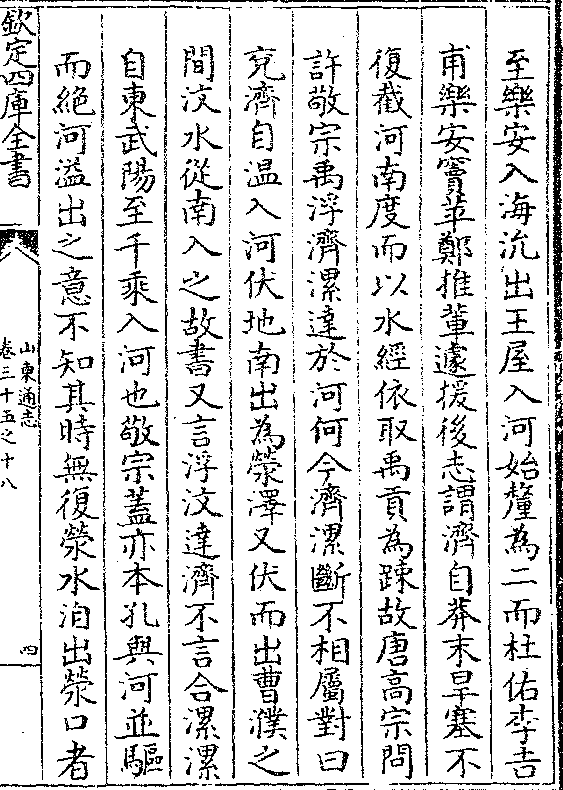 至樂安入海沇出王屋入河始釐為二而杜佑李吉
甫樂安竇苹鄭推軰遽援後志謂濟自莽末旱塞不
復截河南度而以水經依取禹貢為踈故唐高宗問
許敬宗禹浮濟漯達於河何今濟漯斷不相屬對曰
兗濟自温入河伏地南出為滎澤又伏而出曹濮之
間汶水從南入之故書又言浮汶達濟不言合漯漯
自東武陽至千乘入河也敬宗蓋亦本孔與河並驅
而絶河溢出之意不知其時無復滎水洎出滎口者
欽定四庫全書
山東通志
卷三十五之十八
四